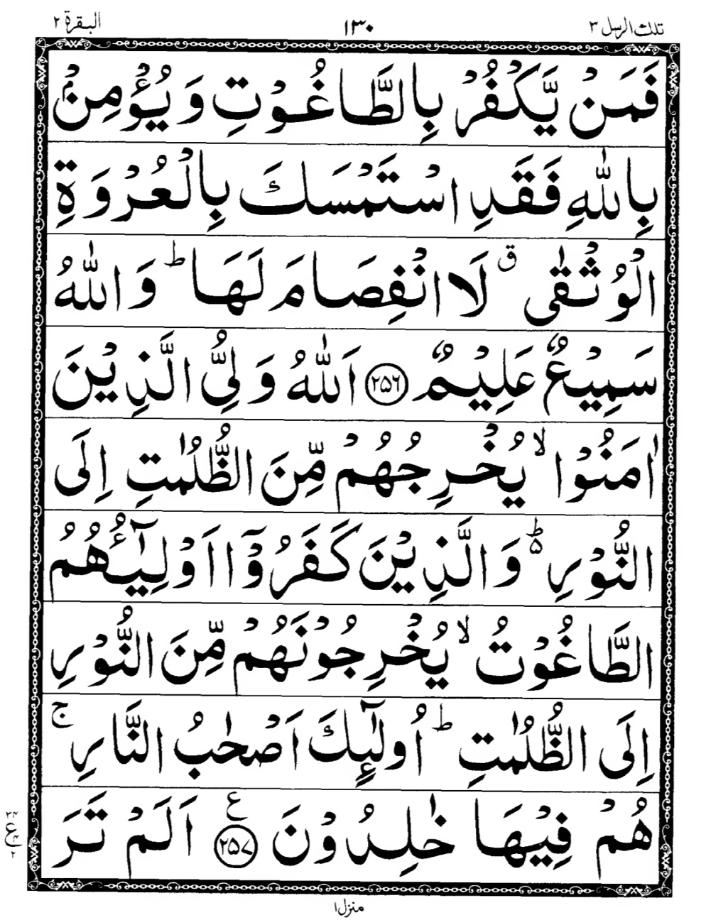 تلك الرسل ٣ ١٣٠ البقرة ٢
فَمَنْ يَّكْفُرْ بِالطَّاغُوْتِ وَيُؤْمِنْۢ
بِاللّٰهِ فَقَدِ اسْتَمْسَكَ بِالْعُرْوَةِ
الْوُثْقٰى ق لَا انْفِصَامَ لَهَا ؕ وَاللّٰهُ
سَمِيْعٌ عَلِيْمٌ ﴿۲۵۶﴾ اَللّٰهُ وَلِىُّ الَّذِيْنَ
اٰمَنُوْا ۙ يُخْرِجُهُمْ مِّنَ الظُّلُمٰتِ اِلَى
النُّوْرِ ؕ۬ وَالَّذِيْنَ كَفَرُوْۤا اَوْلِيٰٓـُٔهُمُ
الطَّاغُوْتُ ۙ يُخْرِجُوْنَهُمْ مِّنَ النُّوْرِ
اِلَى الظُّلُمٰتِ ؕ اُولٰٓئِكَ اَصْحٰبُ النَّارِ ۚ
هُمْ فِيْهَا خٰلِدُوْنَ ع ﴿۲۵۷﴾ اَلَمْ تَرَ
منزل ١